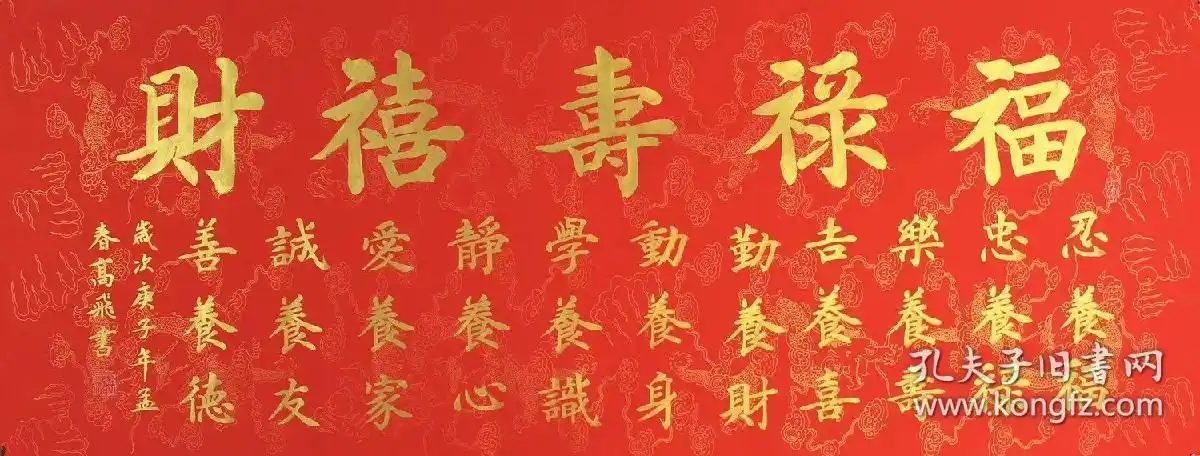 福祿壽禧財
忍養福
忠養祿
樂養壽
吉養喜
勤養財
動養身
學養識
靜養心
愛養家
誠養友
善養德
歲次庚子年孟
春高飛書
孔夫子旧书网
www.kongfz.com